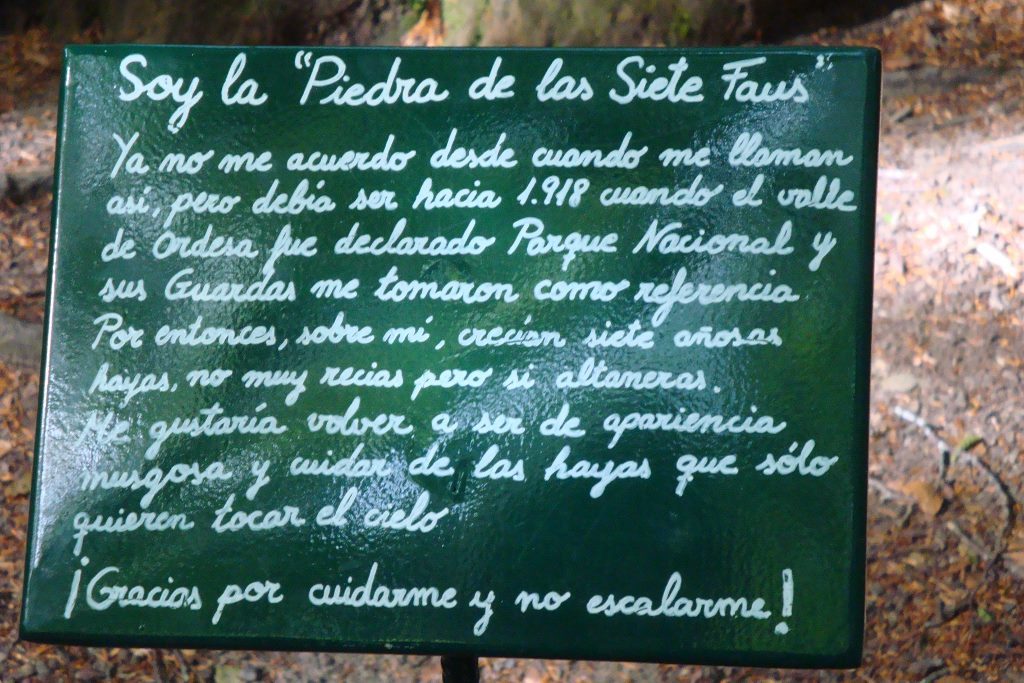 Soy la "Piedra de las Siete Faus"
Ya no me acuerdo desde cuando me llaman
asi, pero debía ser hacia 1.918 cuando el valle
de Ordesa fue declarado Parque Nacional y
sus Guardas me tomaron como referencia
Por entonces, sobre mí, crecían siete añosas
hayas, no muy recias pero si altaneras.
Me gustaría volver a ser de apariencia
musgosa y cuidar de las hayas que sólo
quieren tocar el cielo
¡Gracias por cuidarme y no escalarme!